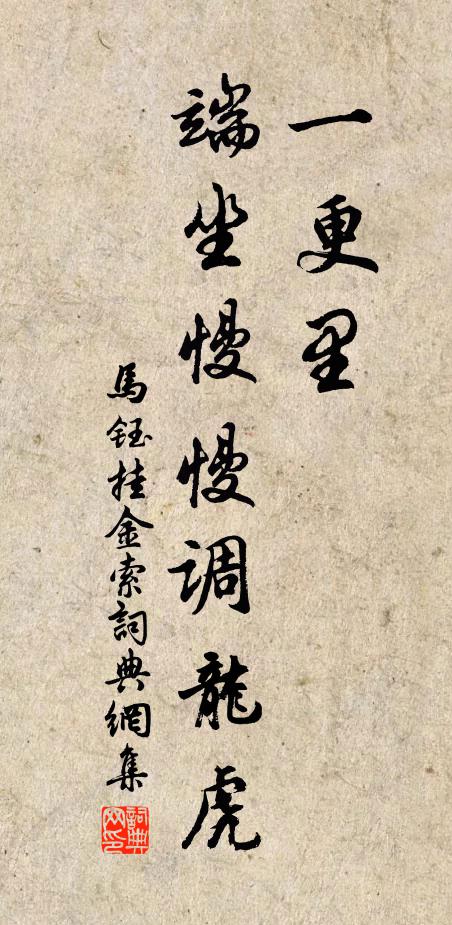 一更里
端坐慢慢调龍虎
馬鈺挂金索詞典網集
詞典
网印